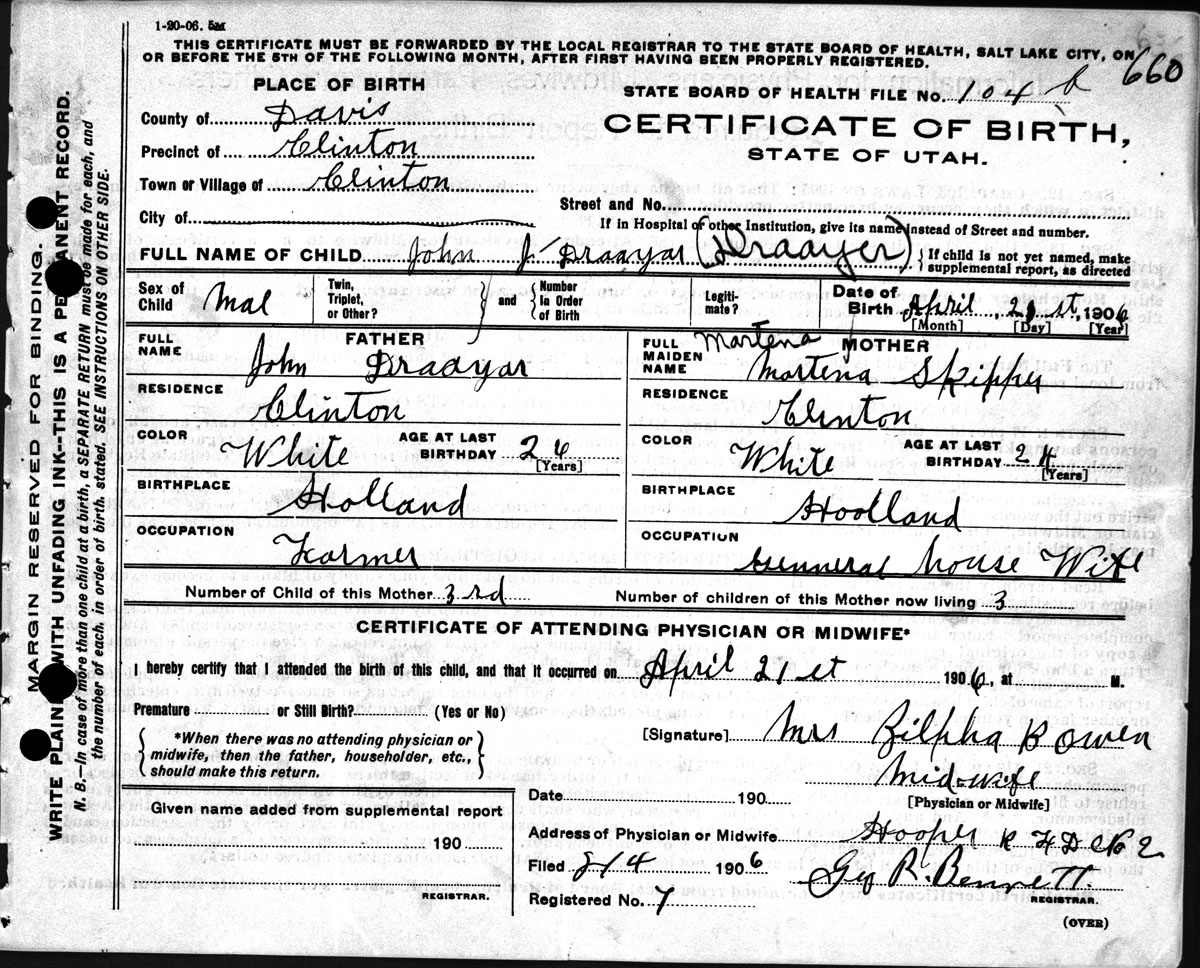 1-20-06. 5M
THIS CERTIFICATE MUST BE FORWARDED BY THE LOCAL REGISTRAR TO THE STATE BOARD OF HEALTH, SALT LAKE CITY, ON
OR BEFORE THE 5TH OF THE FOLLOWING MONTH, AFTER FIRST HAVING BEEN PROPERLY REGISTERED.
660
PLACE OF BIRTH
STATE BOARD OF HEALTH FILE No. 104
County of Davis
CERTIFICATE OF BIRTH,
Precinct of Clinton
STATE OF UTAH.
Town or Village of Clinton
Street and No.
City of
If in Hospital or other Institution, give its name instead of Street and number.
FULL NAME OF CHILD John J. Draayar (Draayer)
{ If child is not yet named, make
supplemental report, as directed
Sex of Child Mal
Twin, Triplet, or Other? } and { Number in Order of Birth
Legiti-mate?
Date of Birth April 21st, 1906
[Month] [Day] [Year]
FATHER
FULL NAME John Draayar
RESIDENCE Clinton
COLOR White AGE AT LAST BIRTHDAY 24
[Years]
BIRTHPLACE Holland
OCCUPATION Farmer
Martena
MOTHER
FULL MAIDEN NAME Martena Skipper
RESIDENCE Clinton
COLOR White AGE AT LAST BIRTHDAY 24
[Years]
BIRTHPLACE Hoolland
OCCUPATION Genneral house Wife
Number of Child of this Mother 3rd
Number of children of this Mother now living 3
CERTIFICATE OF ATTENDING PHYSICIAN OR MIDWIFE*
I hereby certify that I attended the birth of this child, and that it occurred on April 21st 1906, at M.
Premature? or Still Birth? (Yes or No)
{ *When there was no attending physician or
midwife, then the father, householder, etc.,
should make this return. }
[Signature] Mrs Zilpha B Owen
Midwife
Date 190 [Physician or Midwife]
Given name added from supplemental report
190
REGISTRAR.
Address of Physician or Midwife Hooper R F D No 2
Filed 8/4 1906 Geo R. Bennett.
REGISTRAR.
Registered No. 7
(OVER)
MARGIN RESERVED FOR BINDING.
WRITE PLAINLY WITH UNFADING INK--THIS IS A PERMANENT RECORD.
N. B.—In case of more than one child at birth, a SEPARATE RETURN must be made for each, and
the number of each, in order of birth, stated. SEE INSTRUCTIONS ON OTHER SIDE.